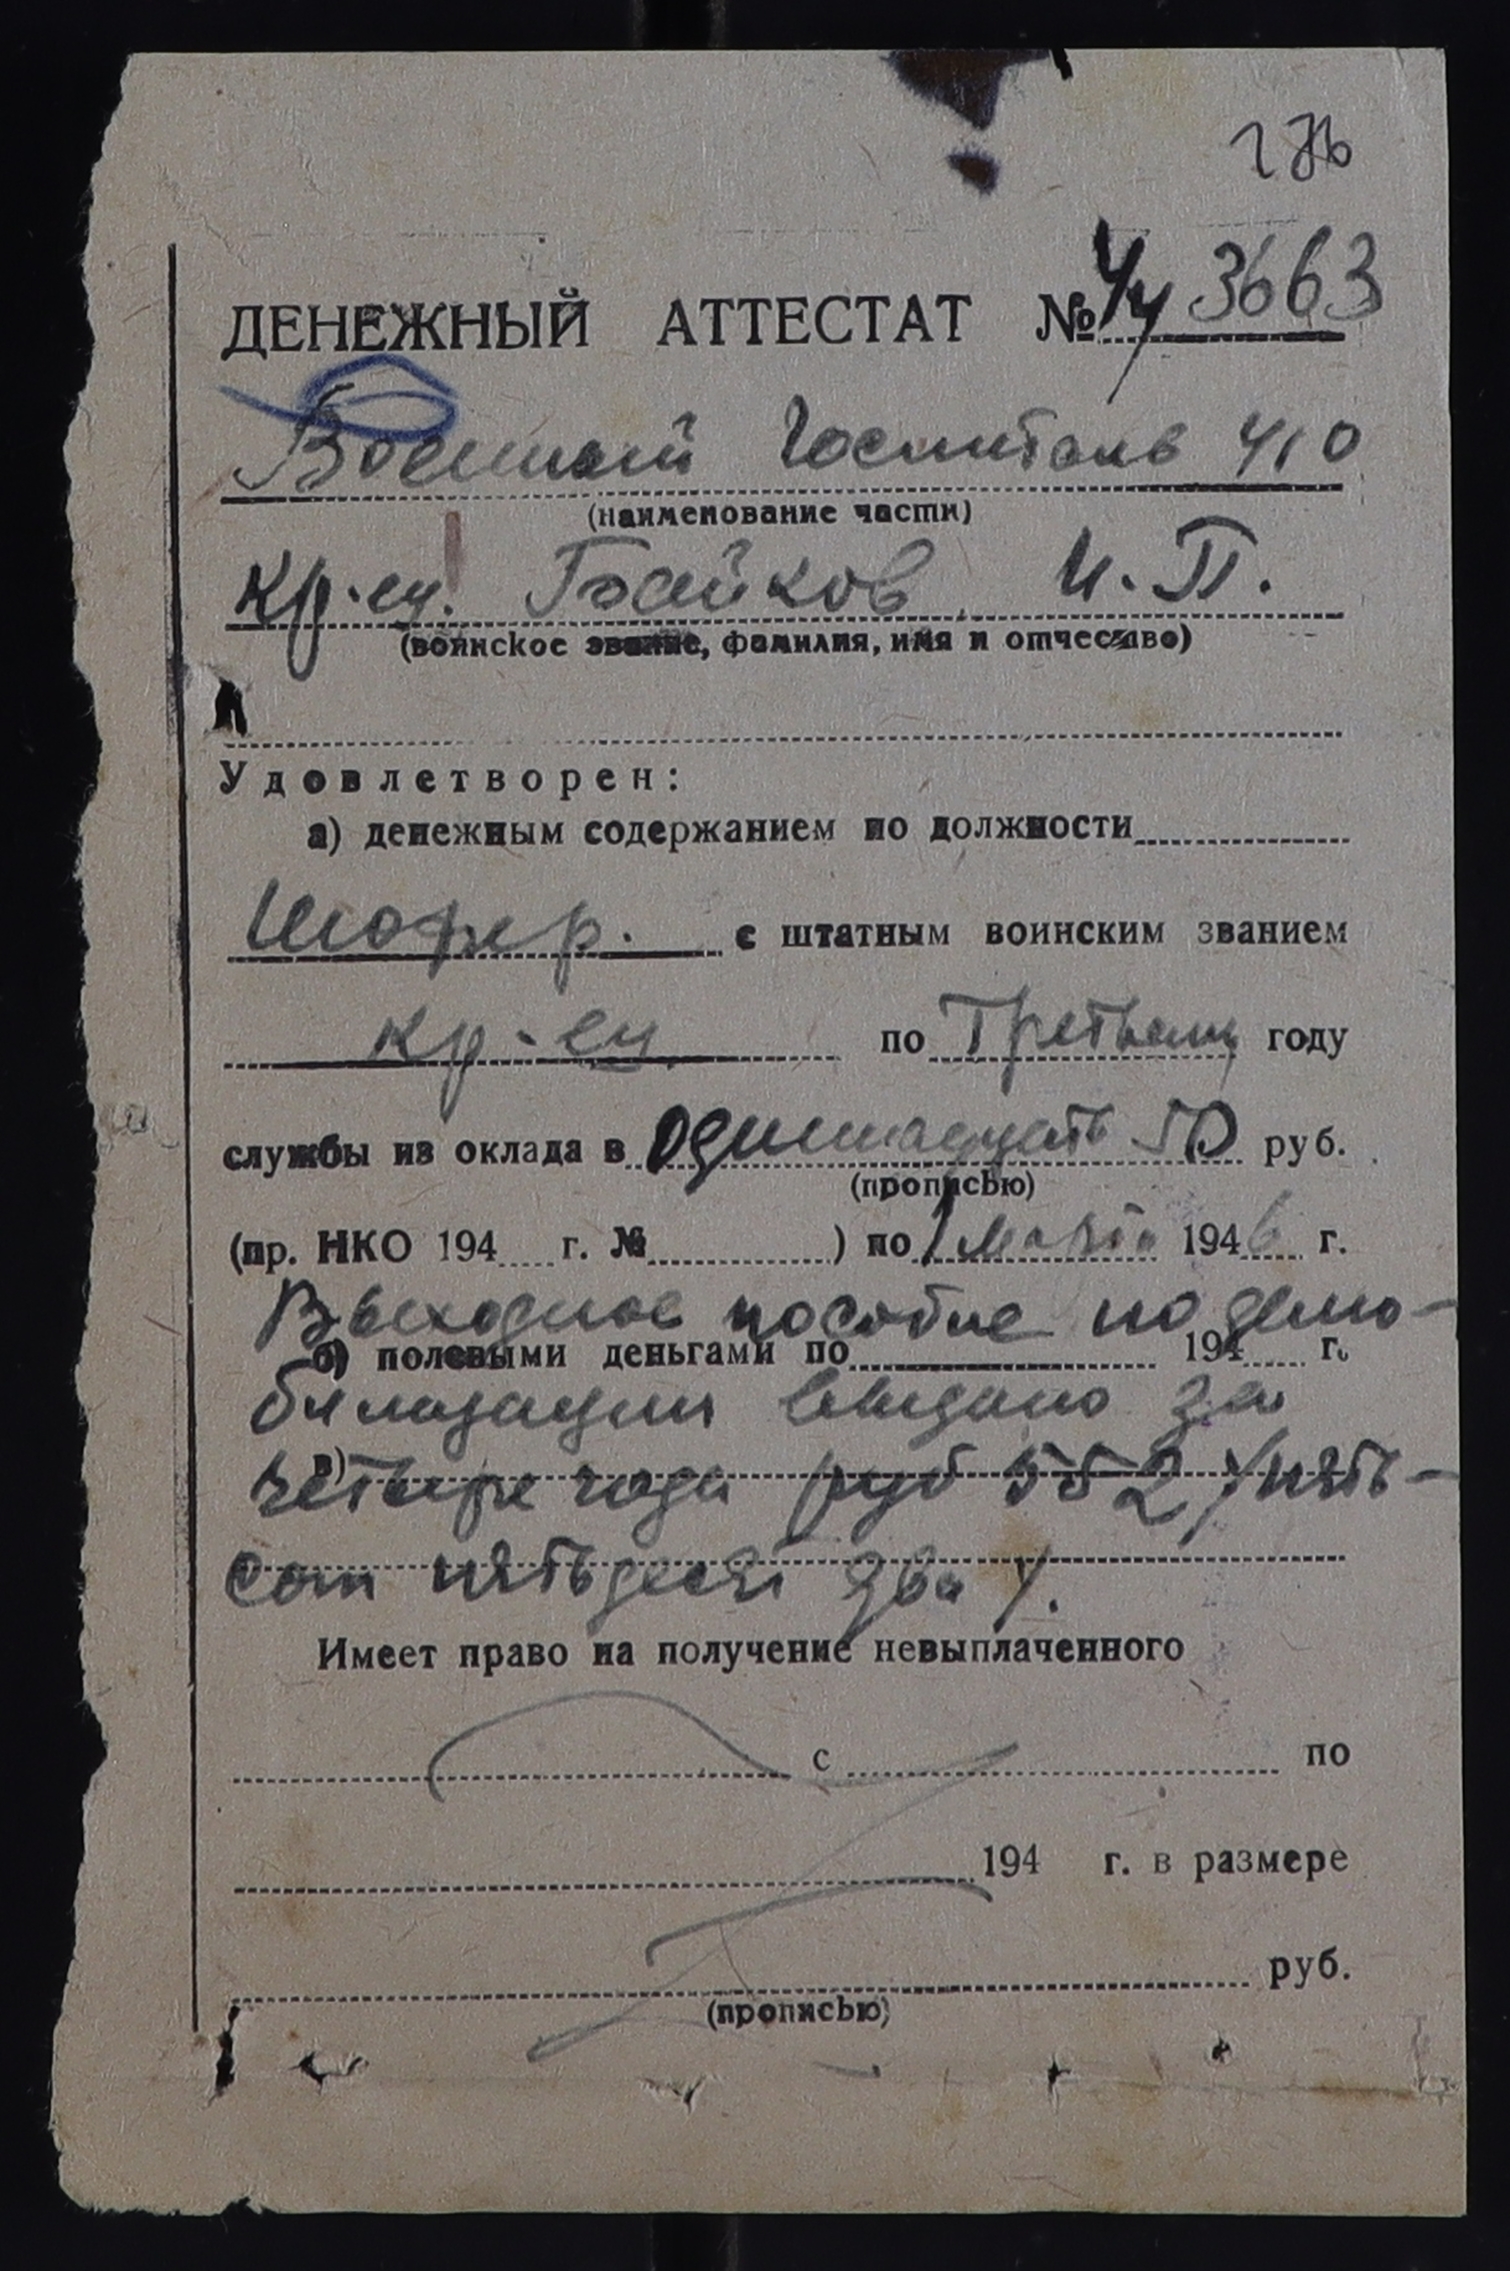 ДЕНЕЖНЫЙ АТТЕСТАТ № 3663
Военный Госпиталь 410
(наименование части)
кр-ец. Байков И. П.
(воинское звание, фамилия, имя и отчество)
Удовлетворен:
а) денежным содержанием по должности
Шофер. с штатным воинским званием
кр-ец по Третьему году
службы из оклада в одиннадцать 50 руб.
(прописью)
(пр. НКО 194 г. № ) по 1 марта 1946 г.
Выходное пособие по демо-
б) полевыми деньгами по 194 г.
билизации выдано за
в)
четыре года руб 552 /пять-
сот пятьдесят два/.
Имеет право на получение невыплаченного
с по
194 г. в размере
руб.
(прописью)